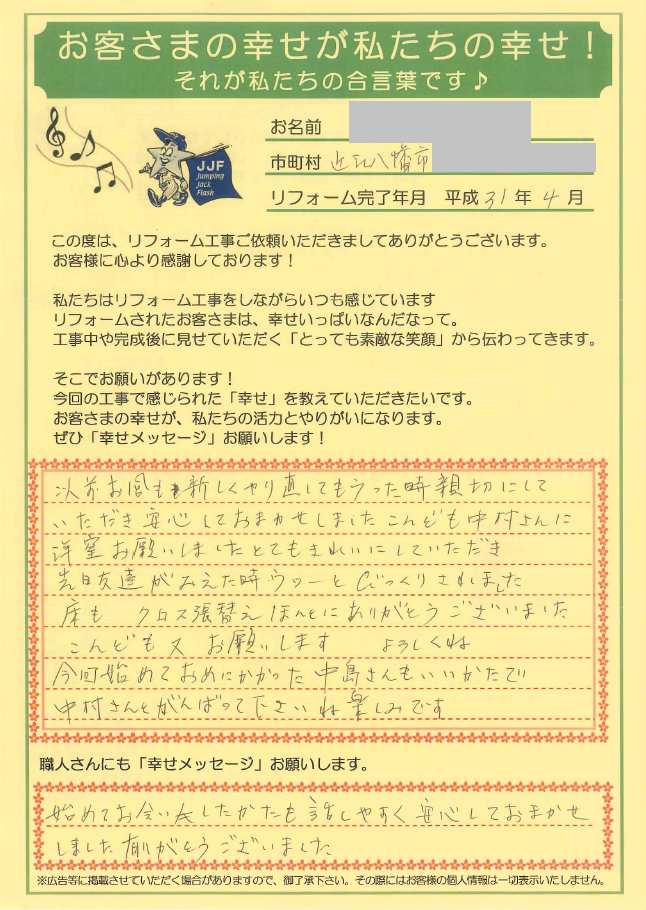 お客さまの幸せが私たちの幸せ！
それが私たちの合言葉です♪
お名前
市町村 近江八幡市
JJF
Jumping
Jack
Flash
リフォーム完了年月 平成 31 年 4 月
この度は、リフォーム工事ご依頼いただきましてありがとうございます。
お客様に心より感謝しております！
私たちはリフォーム工事をしながらいつも感じています
リフォームされたお客さまは、幸せいっぱいなんだなって。
工事中や完成後に見せていただく「とっても素敵な笑顔」から伝わってきます。
そこでお願いがあります！
今回の工事で感じられた「幸せ」を教えていただきたいです。
お客さまの幸せが、私たちの活力とやりがいになります。
ぜひ「幸せメッセージ」お願いします！
以前お風も新しくやり直してもらった時親切にして
いただき安心しておまかせしましたこんども中村さんに
洋室お願いしましたとてもきれいにしていただき
先日友達がみえた時ウワーとびっくりされました
床も クロス張替えほんとにありがとうございました
こんども又 お願いします よろしくね
今回始めておめにかかった中島さんもいいかたで
中村さんとがんばって下さいね楽しみです
職人さんにも「幸せメッセージ」お願いします。
始めてお会い致したかたも話しやすく安心しておまかせ
しました有りがとうございました
※広告等に掲載させていただく場合がありますので、御了承下さい。その際にはお客様の個人情報は一切表示いたしません。